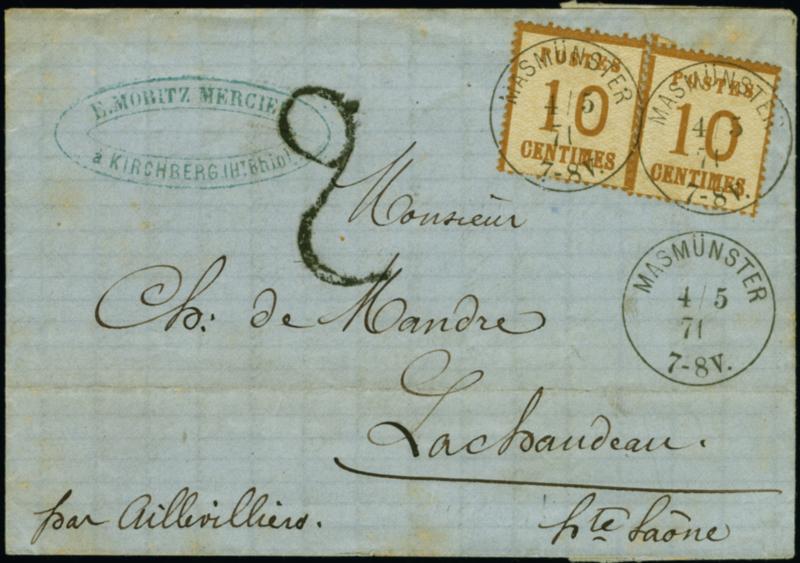 POSTES
10
CENTIMES
POSTES
10
CENTIMES.
MASMÜNSTER
4/5
71
7-8V.
MASMÜNSTER
4/5
71
7-8V.
E. MORITZ MERCIE
à KIRCHBERG. (Ht Rhin)
2
Monsieur
Ch: de Mandre
Lachaudeau.
MASMÜNSTER
4/5
71
7-8V.
par Aillevilliers.
hte Saône